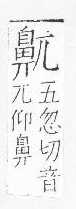 鼿
五忽切音
兀仰鼻